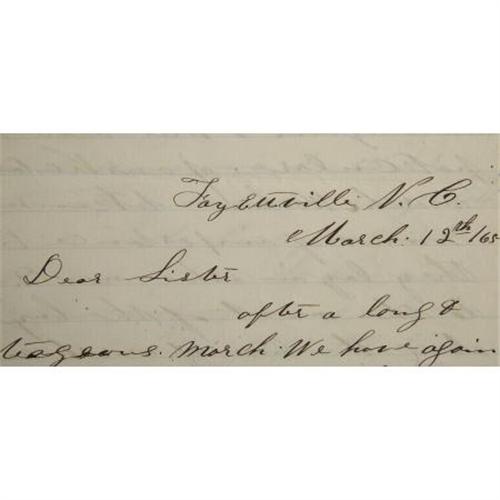 Fayettville N. C.
March. 12th /65
Dear Sister
after a long &
March. We have again